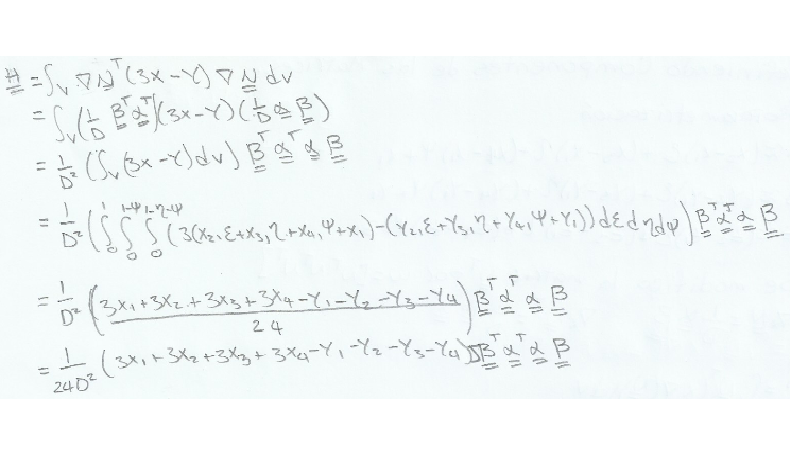 H = ∫_V ∇N^T (3x-Y) ∇N dv
= ∫_V (1/D B^T α^T)(3x-Y)(1/D α B)
= 1/D² (∫_V (3x-Y)dv) B^T α^T α B
= 1/D² (∫_0^1 ∫_0^{1-Ψ} ∫_0^{1-η-Ψ} (3(x₂₁ε+x₃₁η+x₄₁Ψ+x₁)-(Y₂₁ε+Y₃₁η+Y₄₁Ψ+Y₁))dε dη dΨ) B^T α^T α B
= 1/D² ((3x₁+3x₂+3x₃+3x₄-Y₁-Y₂-Y₃-Y₄)/24) B^T α^T α B
= 1/24D² (3x₁+3x₂+3x₃+3x₄-Y₁-Y₂-Y₃-Y₄) B^T α^T α B